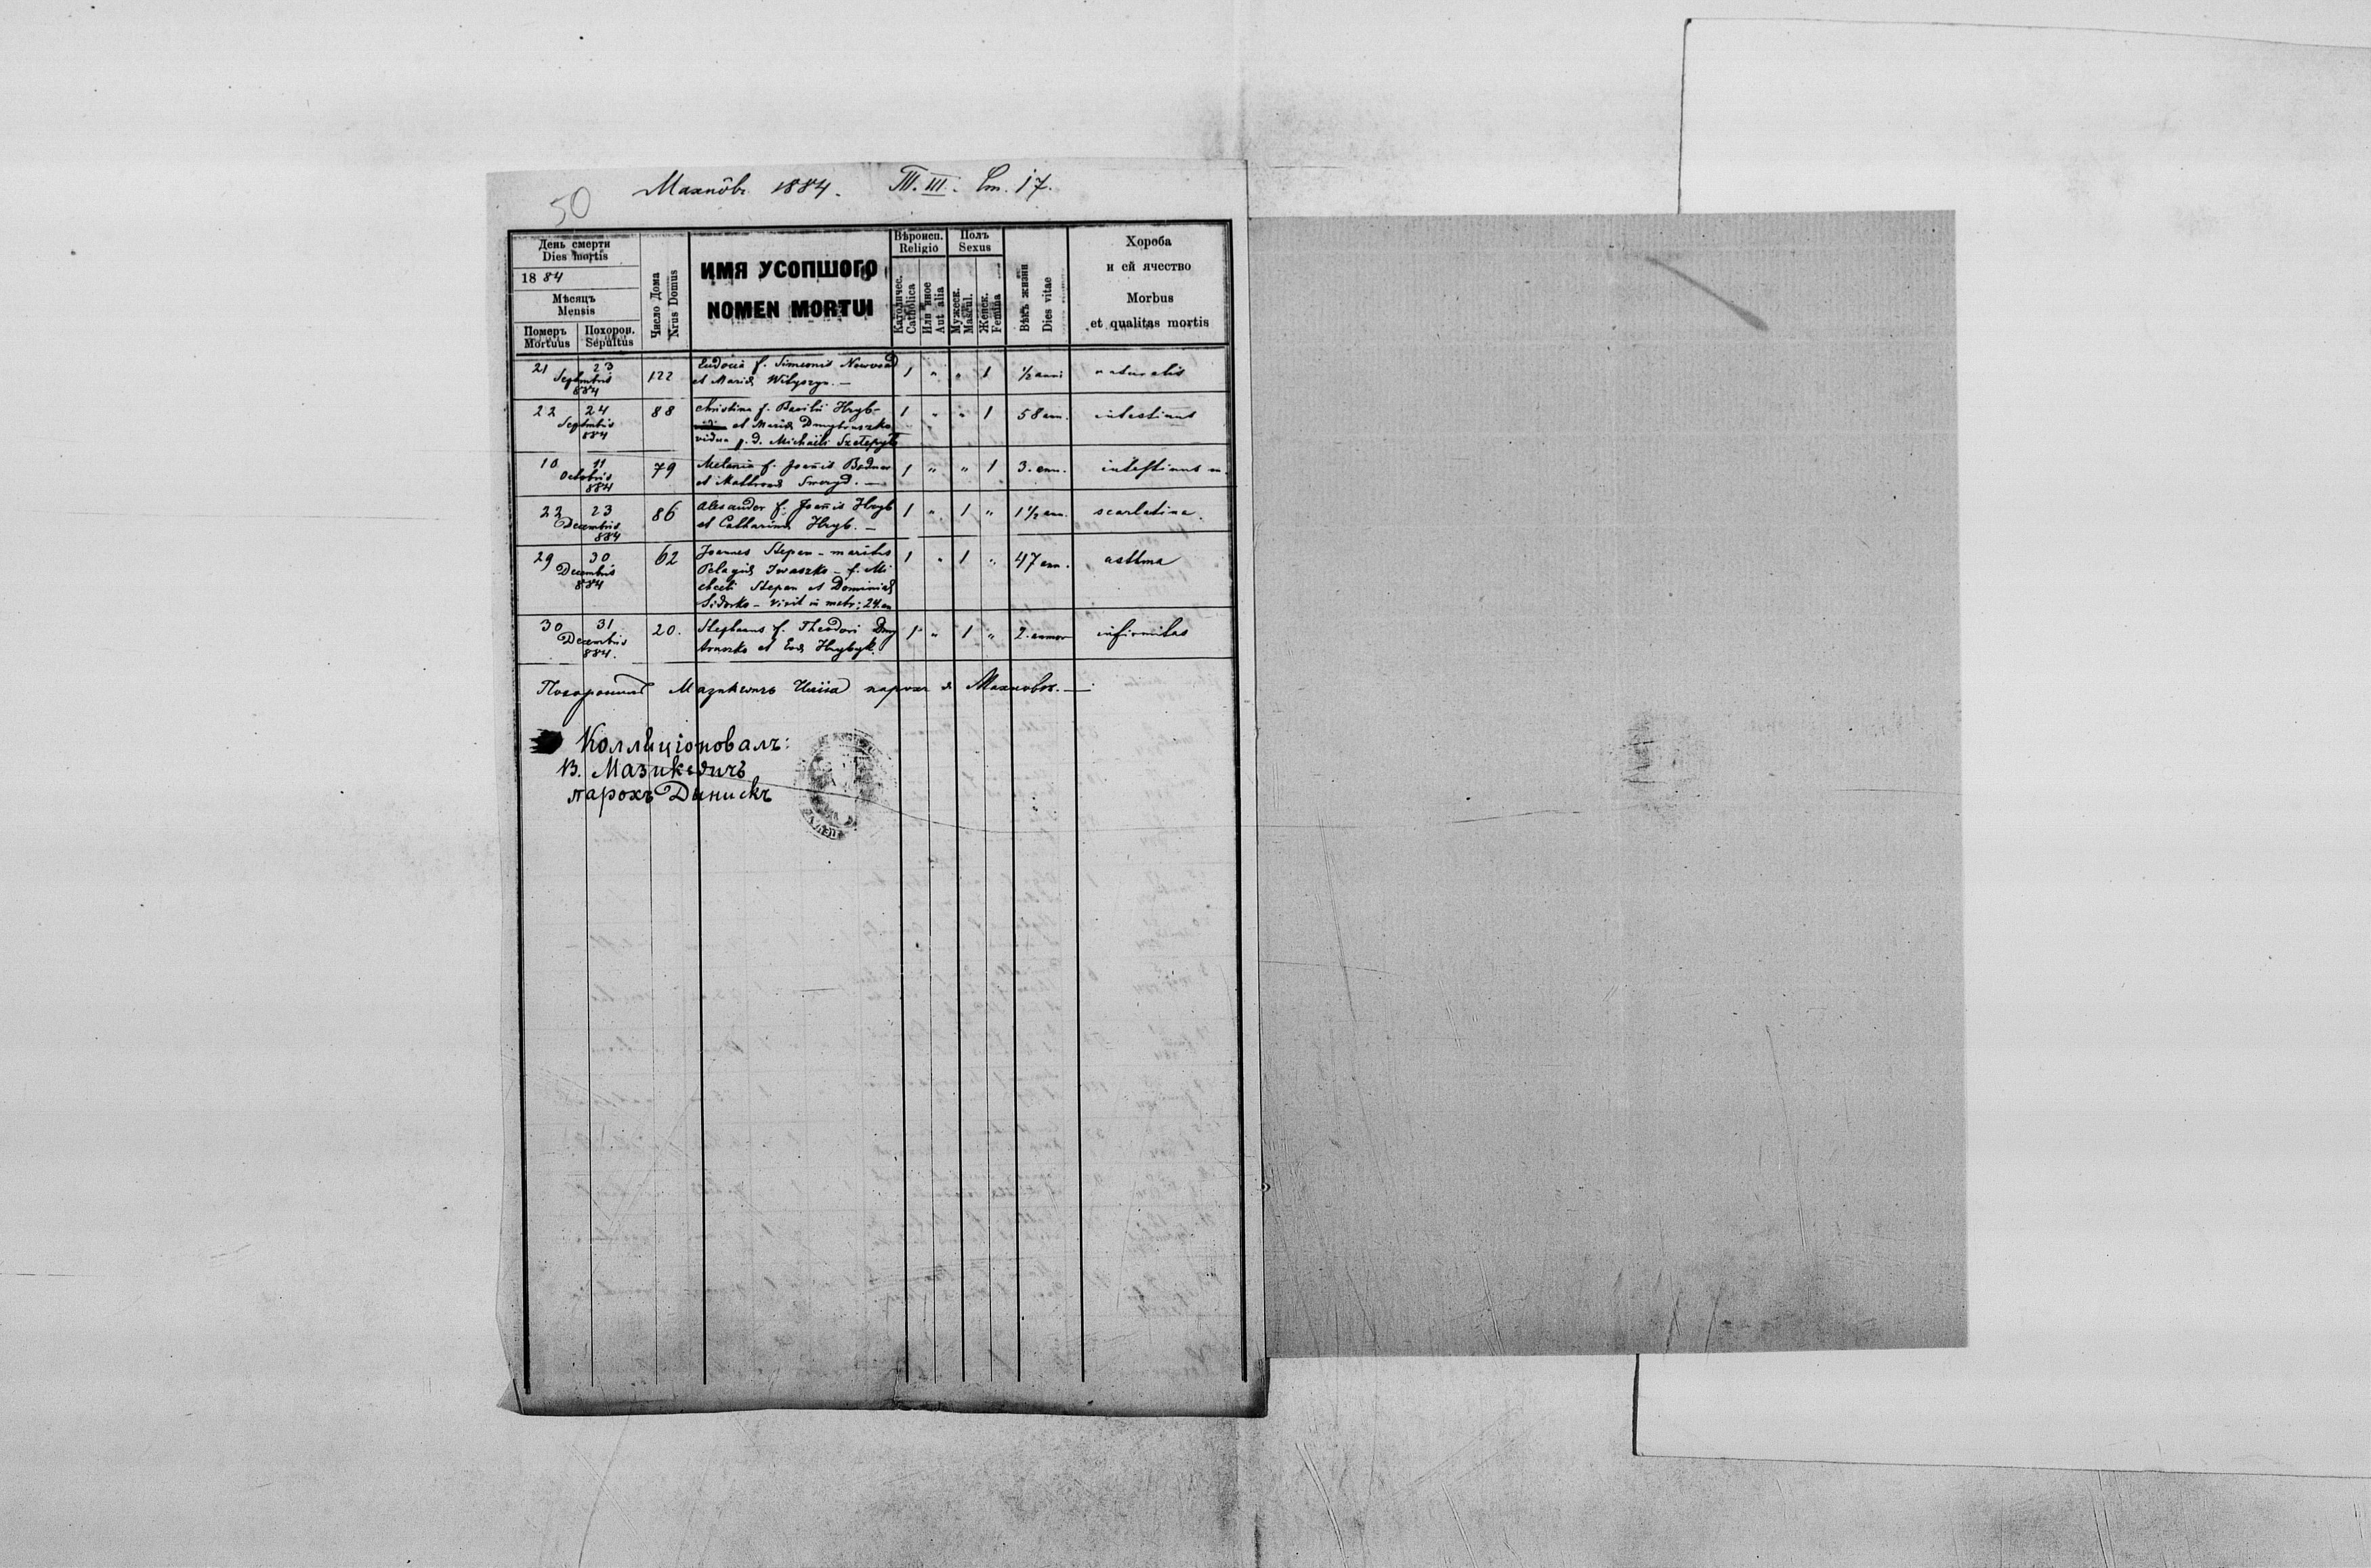 50
Махнôвъ 1884. Т. III. Ст. 17.
День смерти
Dies mortis
1884
Мѣсяцъ
Mensis
Померъ
Mortuus
Похорон.
Sepultus
Число Дома
Nrus Domus
ИМЯ УСОПШОГО
NOMEN MORTUI
Вѣроисп.
Religio
Католичес.
Catholica
Или иное
Aut alia
Полъ
Sexus
Мужеск.
Mascul.
Женск.
Femina
Вѣкъ жизни
Dies vitae
Хороба
и ей ячество
Morbus
et qualitas mortis
21 23
Septembris
884
122
Eudocia f. Simeonis Nowosad
et Mariæ
1 " " 1 ½ anni naturalis
22 24
Septembris
884
88
Christina f. Basilii Hryb
et Mariæ Dmytruszko
vidua p. d. Michaeli
1 " " 1 58 ann. intestinus
10 11
Octobris
884
79
Melania f. Joannis Bednar
et
1 " " 1 3. ann. intestinus
22 23
Decembris
884
86
Alexander f. Joannis Hryb
et Catharinæ Hryb. —
1 " 1 " 1½ ann. scarlatina.
29 30
Decembris
884
62
Joannes Stepan - maritus
Pelagiæ Iwaszko - f. Mi
chaeli Stepan et Dominiæ
Sidorko - vixit in matr: 24. an
1 " 1 " 47 ann. asthma
30 31
Decembris
884.
20.
Stephanus f. Theodori Dmy
truszko et Evæ Hrybyk.
1 " 1 " 2. annor infirmitas
Похоронилъ Мазикевичъ парохъ Махновъ. —
Колляціоновалъ:
В. Мазикевичъ
парохъ Динискъ